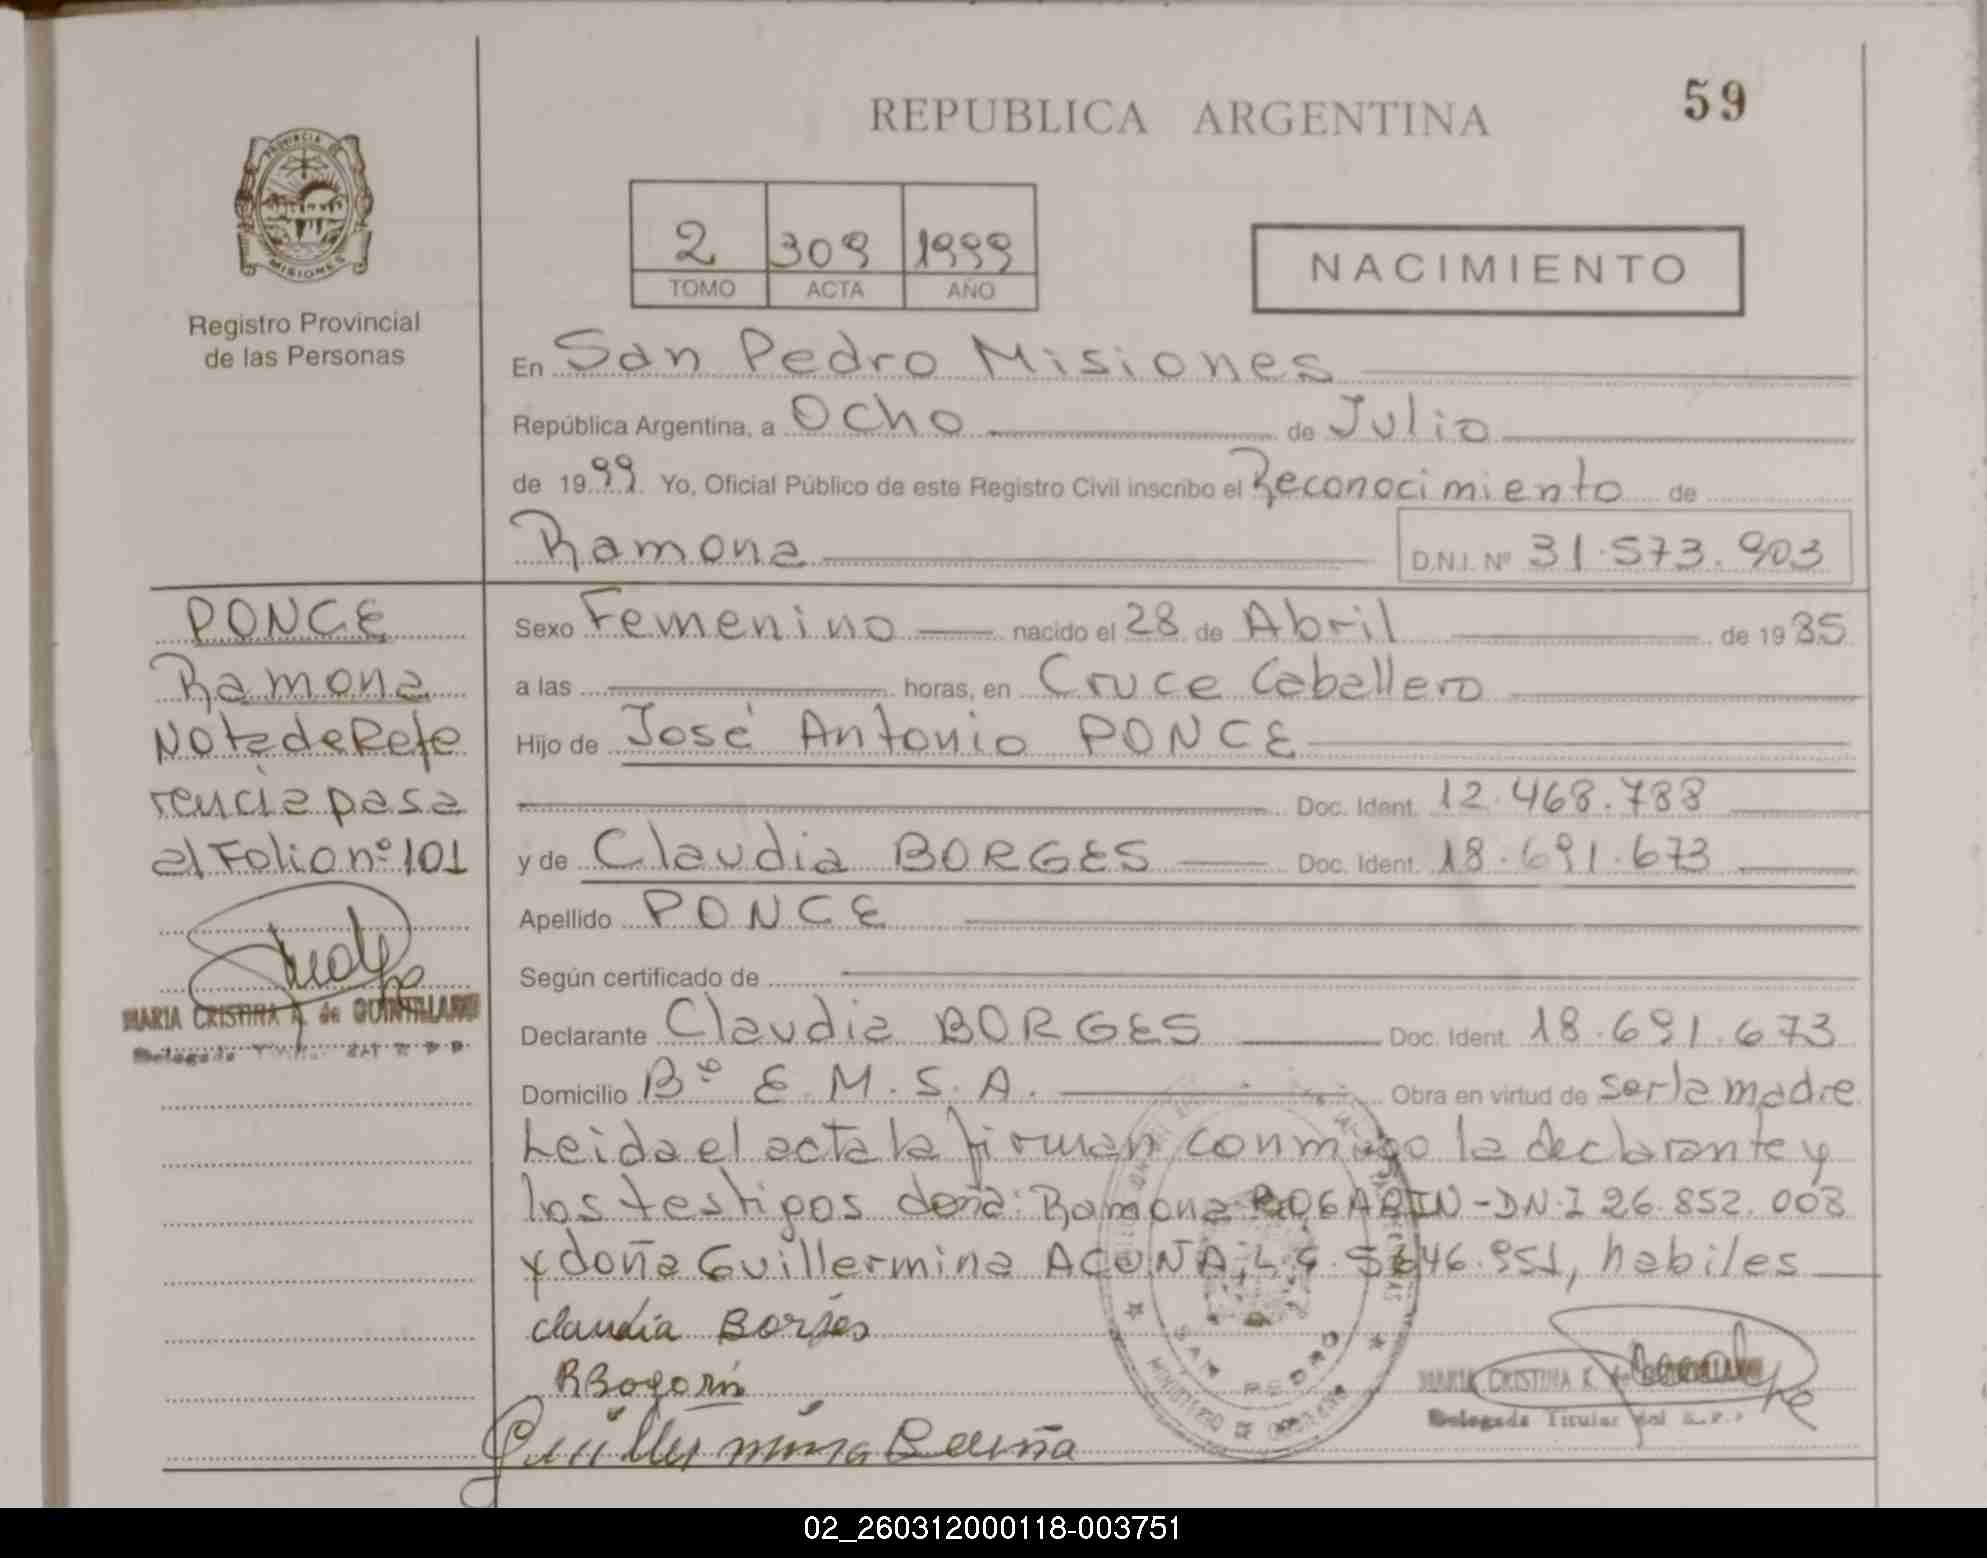 59
REPUBLICA ARGENTINA
PROVINCIA DE
MISIONES
Registro Provincial
de las Personas
2 309 1999
TOMO ACTA AÑO
NACIMIENTO
En San Pedro Misiones
República Argentina, a Ocho de Julio
de 1999 Yo, Oficial Público de este Registro Civil inscribo el Reconocimiento de
Ramona D.N.I. Nº 31.573.903
PONCE
Ramona
Nota de Refe
rencia pasa
al Folio nº 101
MARIA CRISTINA K. de QUINTILLAN
Delegada
Sexo Femenino nacido el 28 de Abril de 1985
a las horas, en Cruce Caballero
Hijo de José Antonio PONCE
Doc. Ident. 12.468.788
y de Claudia BORGES Doc. Ident. 18.691.673
Apellido PONCE
Según certificado de
Declarante Claudia BORGES Doc. Ident. 18.691.673
Domicilio Bº E.M.S.A. Obra en virtud de ser la madre
Leida el acta la firman conmigo la declarante y
los testigos doña: Ramona BOGARIN-DN.I 26.852.008
y doña Guillermina ACUÑA, L.C. 5.646.951, habiles
claudia Borges
R Bogorin
Guillermina Acuña
SAN PEDRO
MINISTERIO DE GOBIERNO
MARIA CRISTINA K. de
Delegada Titular del R.P.
02_260312000118-003751